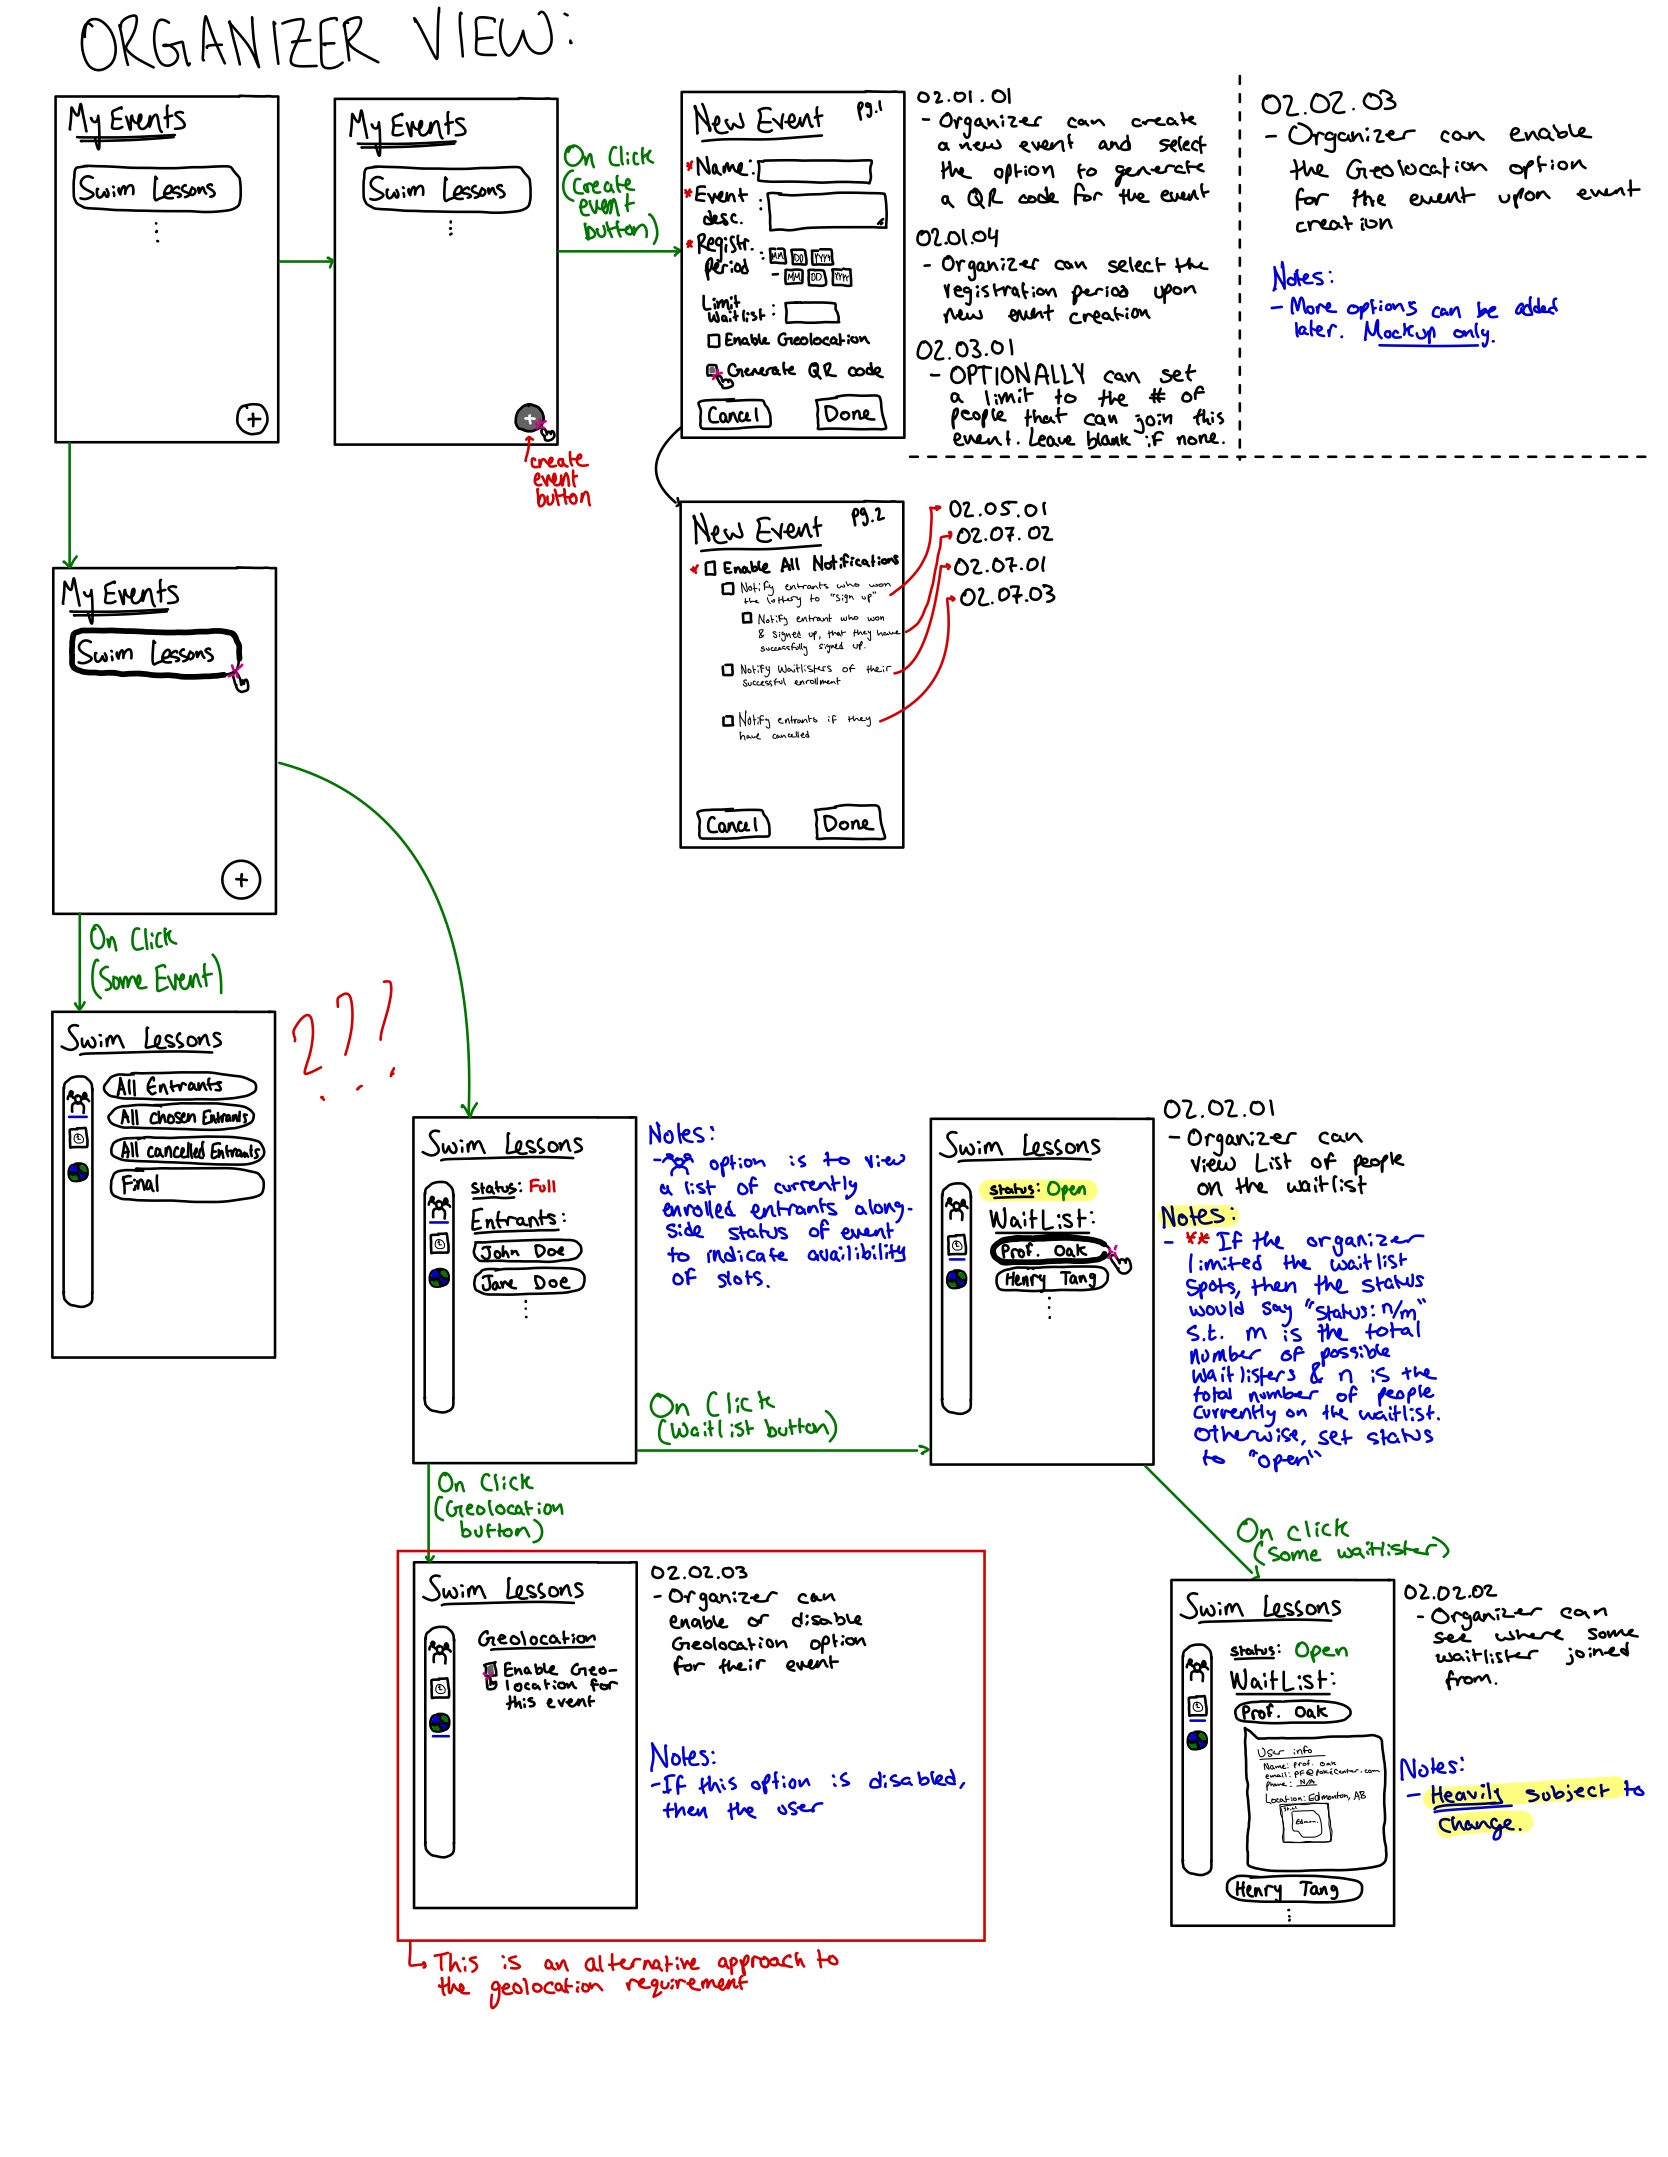 ORGANIZER VIEW:
My Events
Swim Lessons
My Events
Swim Lessons
create
event
button
On Click
(create
event
button)
New Event pg.1
* Name:
* Event
desc. :
* Registr.
period : MM DD YYYY
- MM DD YYYY
Limit
Waitlist :
Enable Geolocation
Generate QR code
Cancel Done
02.01.01
- Organizer can create
a new event and select
the option to generate
a QR code for the event
02.01.04
- Organizer can select the
registration period upon
new event creation
02.03.01
- OPTIONALLY can set
a limit to the # of
people that can join this
event. Leave blank if none.
02.02.03
- Organizer can enable
the Geolocation option
for the event upon event
creation
Notes:
- More options can be added
later. Mockup only.
New Event pg.2
* Enable All Notifications
Notify entrants who won
the lottery to "sign up"
Notify entrant who won
& signed up, that they have
successfully signed up.
Notify Waitlisters of their
successful enrollment
Notify entrants if they
have cancelled
Cancel Done
02.05.01
02.07.02
02.07.01
02.07.03
My Events
Swim Lessons
+
On Click
(Some Event)
Swim Lessons
All Entrants
All chosen Entrants
All cancelled Entrants
Final
???
Swim Lessons
Status: Full
Entrants:
John Doe
Jane Doe
Notes:
- option is to view
a list of currently
enrolled entrants along-
side status of event
to indicate availibility
of slots.
On Click
(Waitlist button)
Swim Lessons
Status: Open
WaitList:
Prof. Oak
Henry Tang
02.02.01
- Organizer can
view List of people
on the waitlist
Notes:
- ** If the organizer
limited the waitlist
spots, then the status
would say "status: n/m"
s.t. m is the total
number of possible
waitlisters & n is the
total number of people
currently on the waitlist.
Otherwise, set status
to "open"
On Click
(Geolocation
button)
Swim Lessons
Geolocation
Enable Geo-
location for
this event
02.02.03
- Organizer can
enable or disable
Geolocation option
for their event
Notes:
- If this option is disabled,
then the user
This is an alternative approach to
the geolocation requirement
On click
(some waitlister)
Swim Lessons
Status: Open
WaitList:
Prof. Oak
User info
Name: prof. oak
email: pf@pokécenter.com
phone: N/A
Location: Edmonton, AB
Henry Tang
02.02.02
- Organizer can
see where some
waitlister joined
from.
Notes:
- Heavily subject to
change.